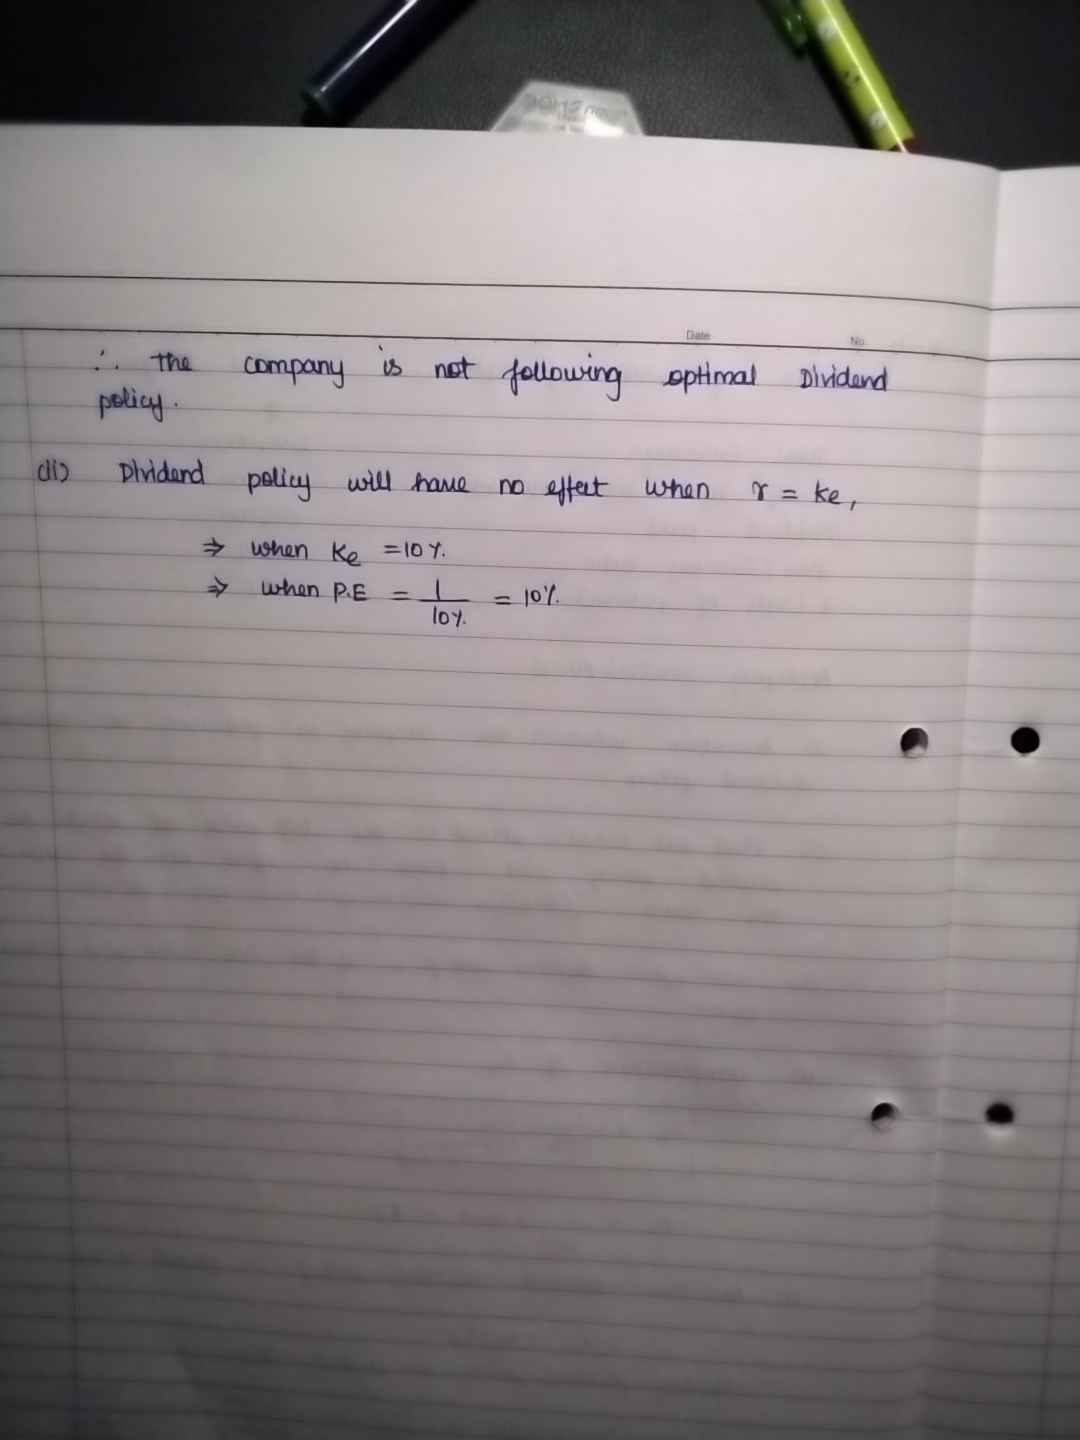 Date
No.
∴ The company is not following optimal Dividend
policy.
(ii) Dividend policy will have no effect when r = ke,
⇒ when Ke = 10%.
⇒ when P.E = 1/10% = 10%.